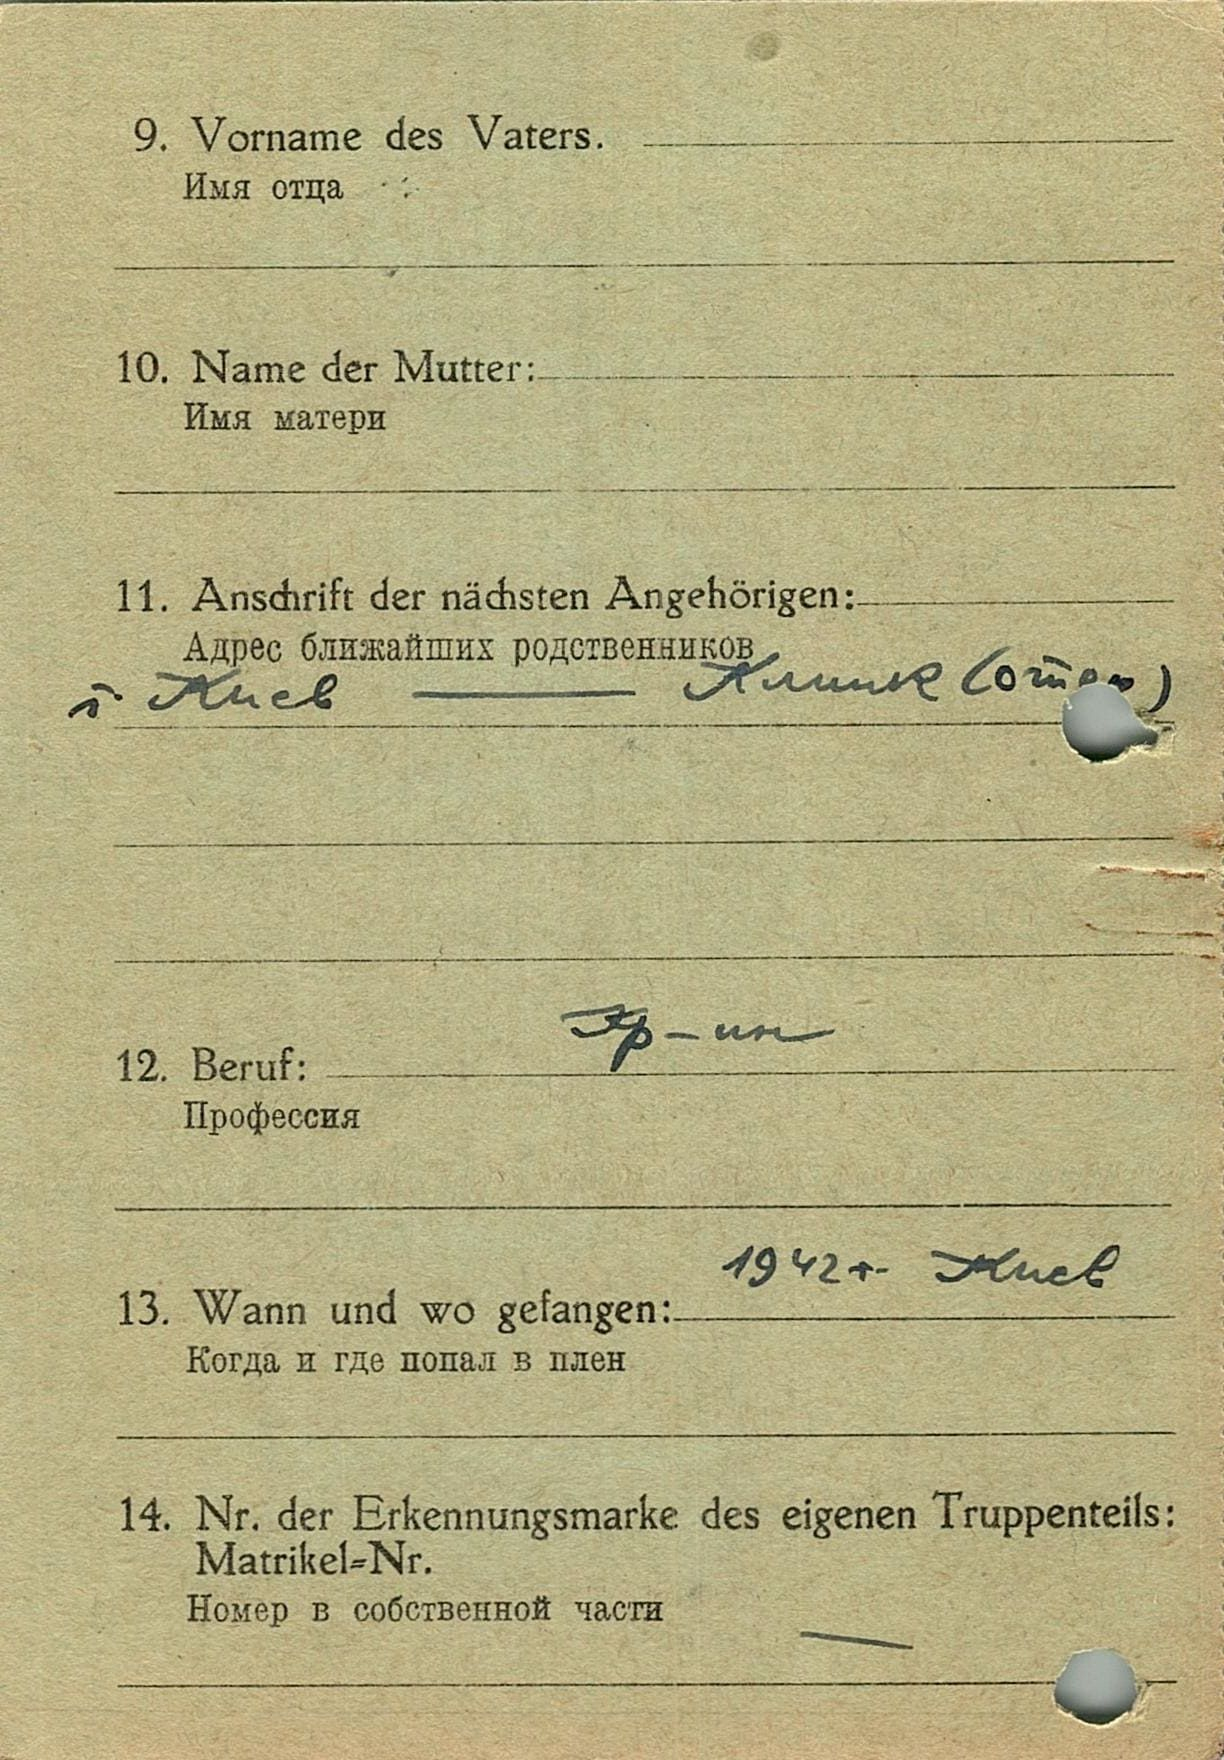 9. Vorname des Vaters.
Имя отца
10. Name der Mutter:
Имя матери
11. Anschrift der nächsten Angehörigen:
Адрес ближайших родственников
г Киев — (отец)
12. Beruf:
Кр-ин
Профессия
1942 г. Киев
13. Wann und wo gefangen:
Когда и где попал в плен
14. Nr. der Erkennungsmarke des eigenen Truppenteils:
Matrikel=Nr.
Номер в собственной части
—